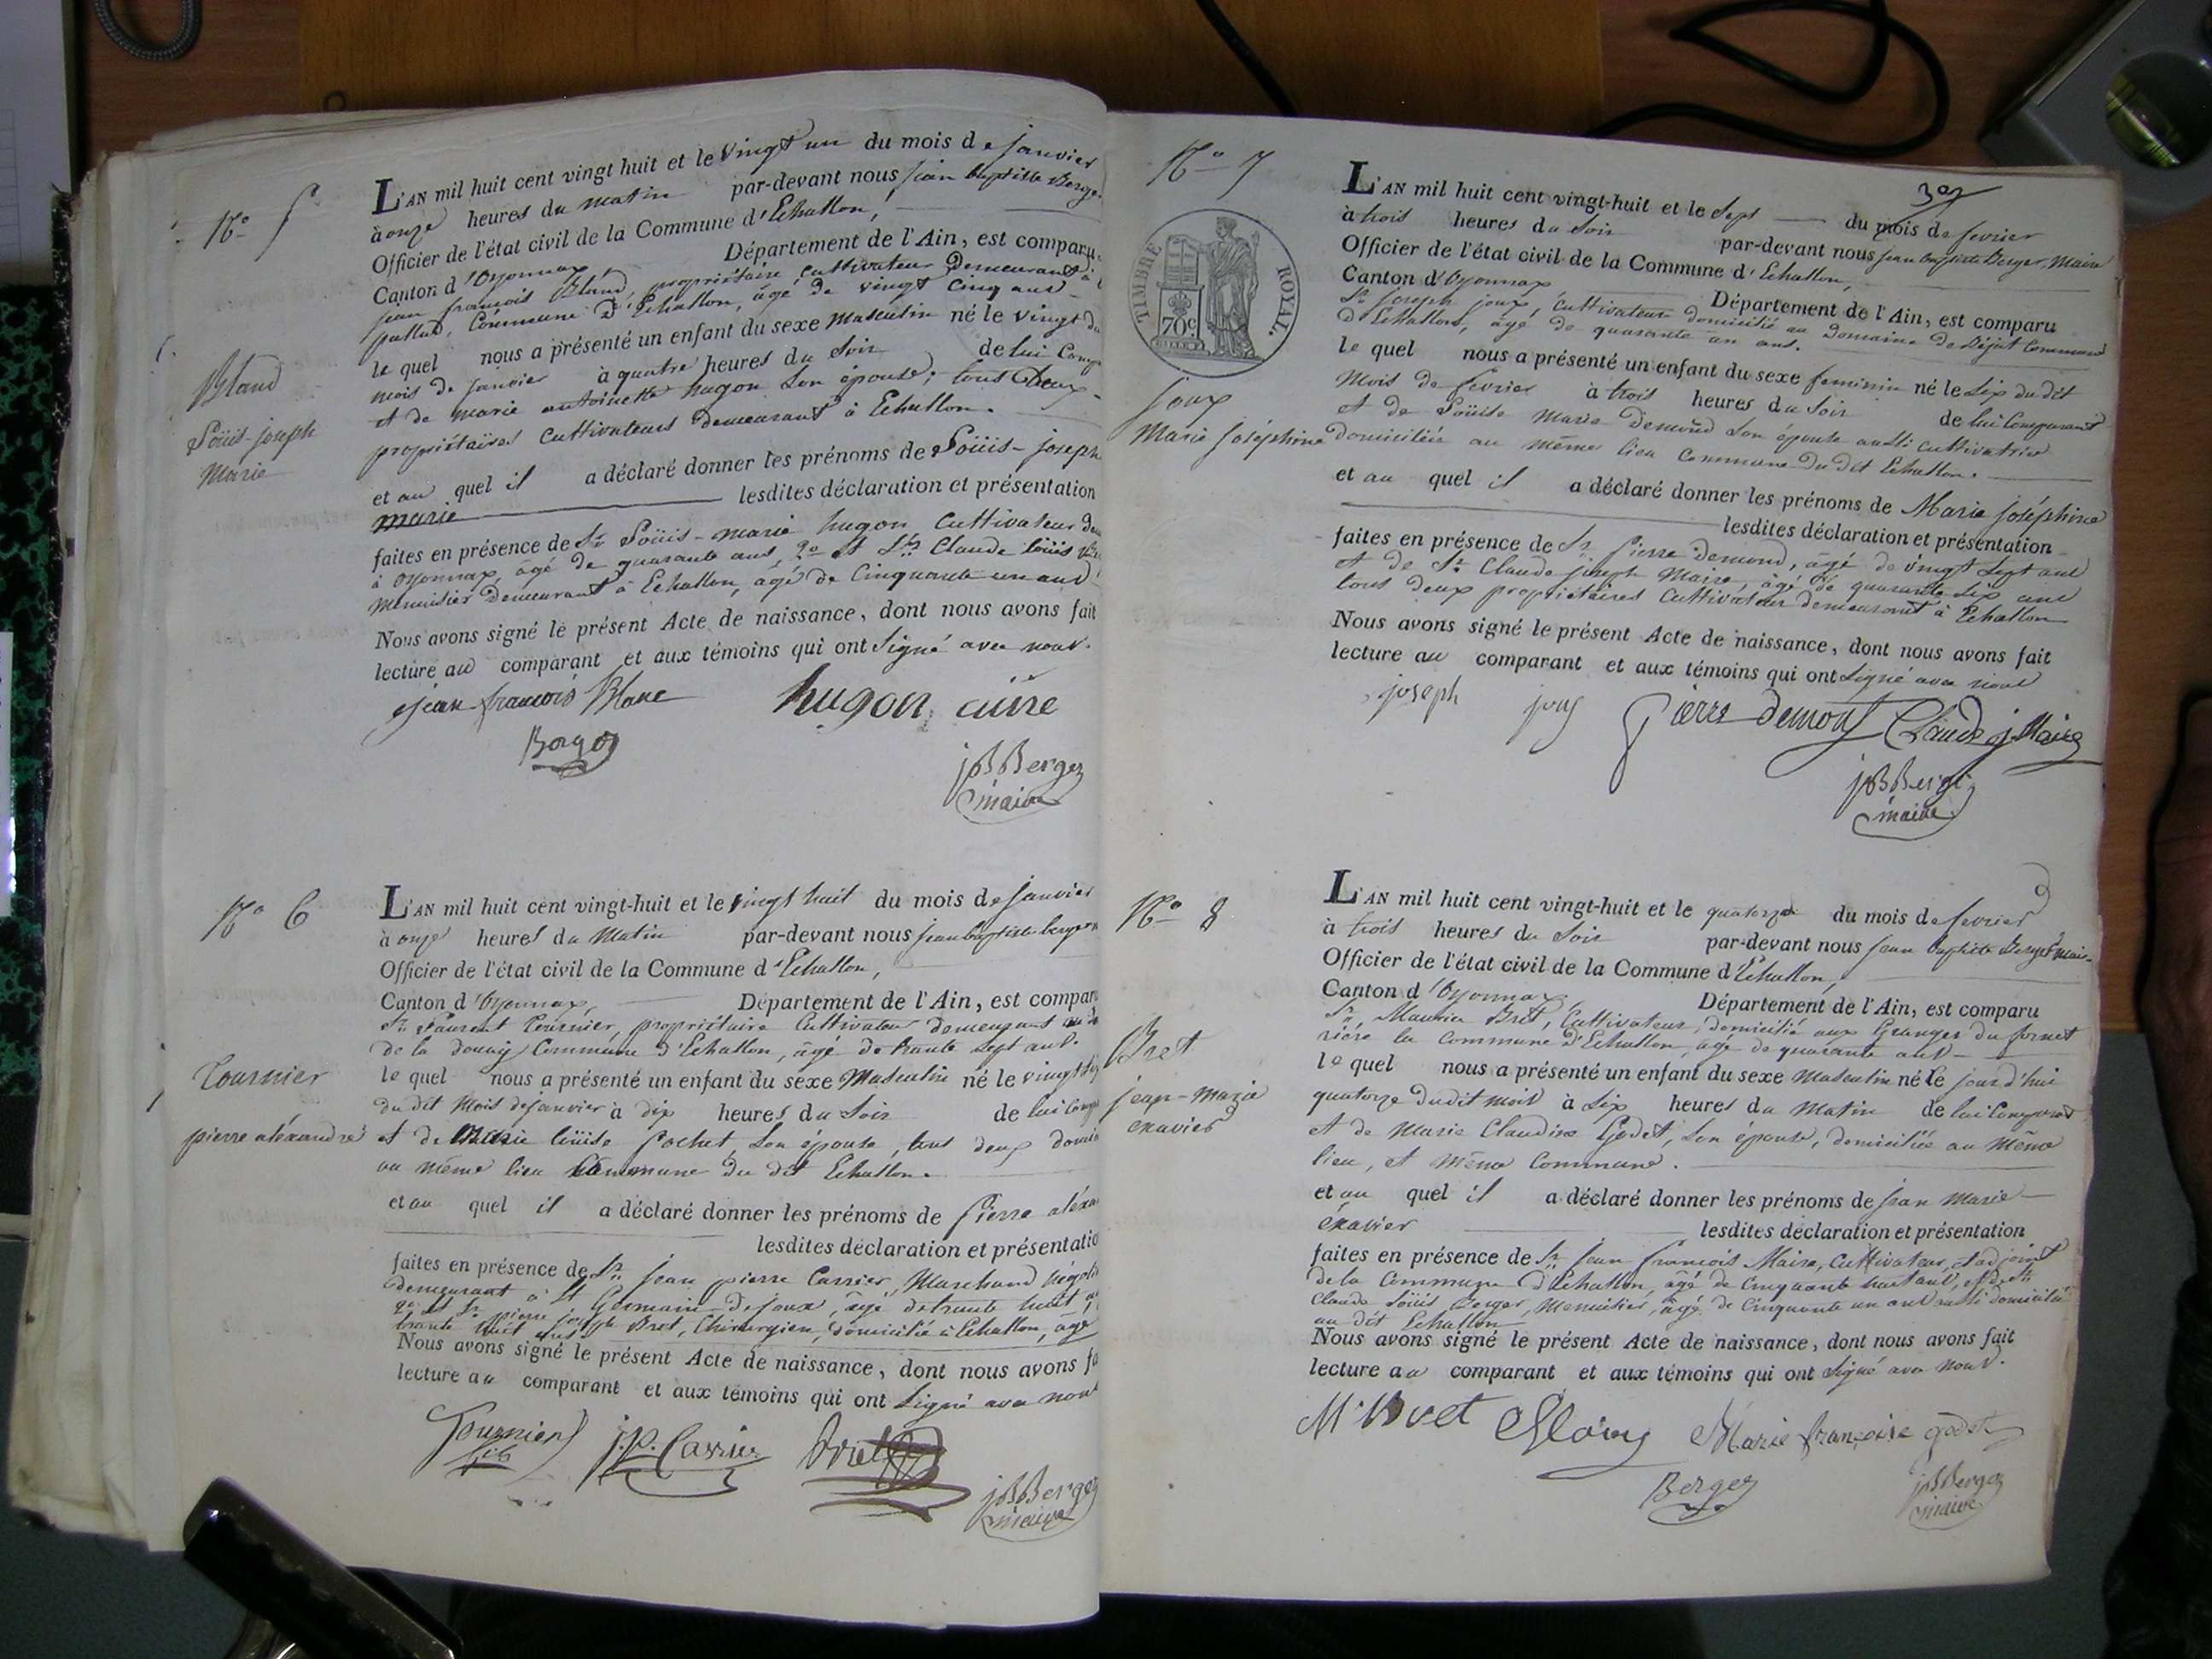 No 5
Bland
Loüis-joseph
Marie
L'AN mil huit cent vingt huit et le vingt un du mois de janvier
à onze heures du matin par-devant nous jean baptiste Berger
Officier de l'état civil de la Commune d'Echallon,
Canton d'Oyonnax Département de l'Ain, est comparu
jean françois Bland, propriétaire cultivateur demeurant à
Commune d'Echallon, âgé de vingt cinq ans
le quel nous a présenté un enfant du sexe masculin né le vingt du
mois de janvier à quatre heures du soir de lui comp
et de marie antoinette hugon son épouse, tous deux
propriétaires cultivateurs demeurant à Echallon.
et au quel il a déclaré donner les prénoms de Loüis-joseph
marie lesdites déclaration et présentation
faites en présence de Sr Loüis-marie hugon cultivateur
à oyonnax, âgé de quarante ans, 2o et Sr Claude loüis
Menuisier demeurant à Echallon, âgé de cinquante un ans
Nous avons signé le présent Acte de naissance, dont nous avons fait
lecture au comparant et aux témoins qui ont signé avec nous.
jean françois Blanc hugon
Berger
jB Berger
maire
No 6
Tournier
pierre aléxandre
L'AN mil huit cent vingt-huit et le vingt huit du mois de janvier
à onze heures du Matin par-devant nous jean baptiste berger
Officier de l'état civil de la Commune d'Echallon,
Canton d'Oyonnax, Département de l'Ain, est compar
Sr Laurent Tournier, propriétaire Cultivateur demeurant
de la Commune d'Echallon, âgé de trente sept ans.
le quel nous a présenté un enfant du sexe Masculin né le vingt
du dit Mois de janvier à dix heures du Soir de lui comp
et de Marie loüise Pochet, son épouse, tous deux domici
au même lieu Commune du dit Echallon.
et au quel il a déclaré donner les prénoms de Pierre aléxa
lesdites déclaration et présentatio
faites en présence de Sr jean pierre Carrier, Marchand
demeurant à St Germain-de joux, âgé de trente huit
2o et Sr pierre joseph Bret, Chirurgien, domicilié à Echallon, agé
trente huit ans.
Nous avons signé le présent Acte de naissance, dont nous avons fa
lecture au comparant et aux témoins qui ont signé avec nous
Tournier j.p. Carrier Bret
jB Berger
maire
No 7
TIMBRE ROYAL.
70c
Joux
Marie Joséphine
L'AN mil huit cent vingt-huit et le sept du mois de fevrier
à trois heures du Soir par-devant nous jean baptiste Berger, Maire
Officier de l'état civil de la Commune d'Echallon,
Canton d'Oyonnax Département de l'Ain, est comparu
Sr joseph joux, cultivateur domicilié au Domaine de
d'Echallon, âgé de quarante un ans.
le quel nous a présenté un enfant du sexe feminin né le six du dit
Mois de fevrier à trois heures du Soir de lui comparant
et de Loüise Marie Demond son épouse aussi cultivatrice
domiciliée au même lieu Commune du dit Echallon.
et au quel il a déclaré donner les prénoms de Marie joséphine
lesdites déclaration et présentation
faites en présence de Sr Pierre Demond, âgé de vingt sept ans
et de Sr Claude joseph Maire, âgé de quarante six ans
tous deux propriétaires Cultivateurs demeurant à Echallon
Nous avons signé le présent Acte de naissance, dont nous avons fait
lecture au comparant et aux témoins qui ont signé avec nous
joseph joux Pierre Demont Claude j. Maire
jB Berger
maire
No 8
Bret
jean-marie
éxavier
L'AN mil huit cent vingt-huit et le quatorze du mois de fevrier
à trois heures du Soir par-devant nous jean baptiste Berger mair
Officier de l'état civil de la Commune d'Echallon,
Canton d'Oyonnax, Département de l'Ain, est comparu
Sr Maurice Bret, Cultivateur, domicilié aux Granges du fornet
rière la Commune d'Echallon, âgé de quarante ans
le quel nous a présenté un enfant du sexe Masculin né le jour d'hui
quatorze du dit mois à six heures du Matin de lui comparant
et de Marie Claudine Godet, son épouse, domiciliée au Même
lieu, et Même Commune.
et au quel il a déclaré donner les prénoms de jean Marie
éxavier lesdites déclaration et présentation
faites en présence de Sr jean françois Maire, cultivateur, et adjoint
de la Commune d'Echallon, âgé de Cinquante huit ans, et de Sr
Claude Loüis Berger, Menuisier, âgé de Cinquante un ans aussi domicilié
au dit Echallon
Nous avons signé le présent Acte de naissance, dont nous avons fait
lecture au comparant et aux témoins qui ont signé avec nous.
M. Bret Marie françoise godet
Berger
jB Berger
maire